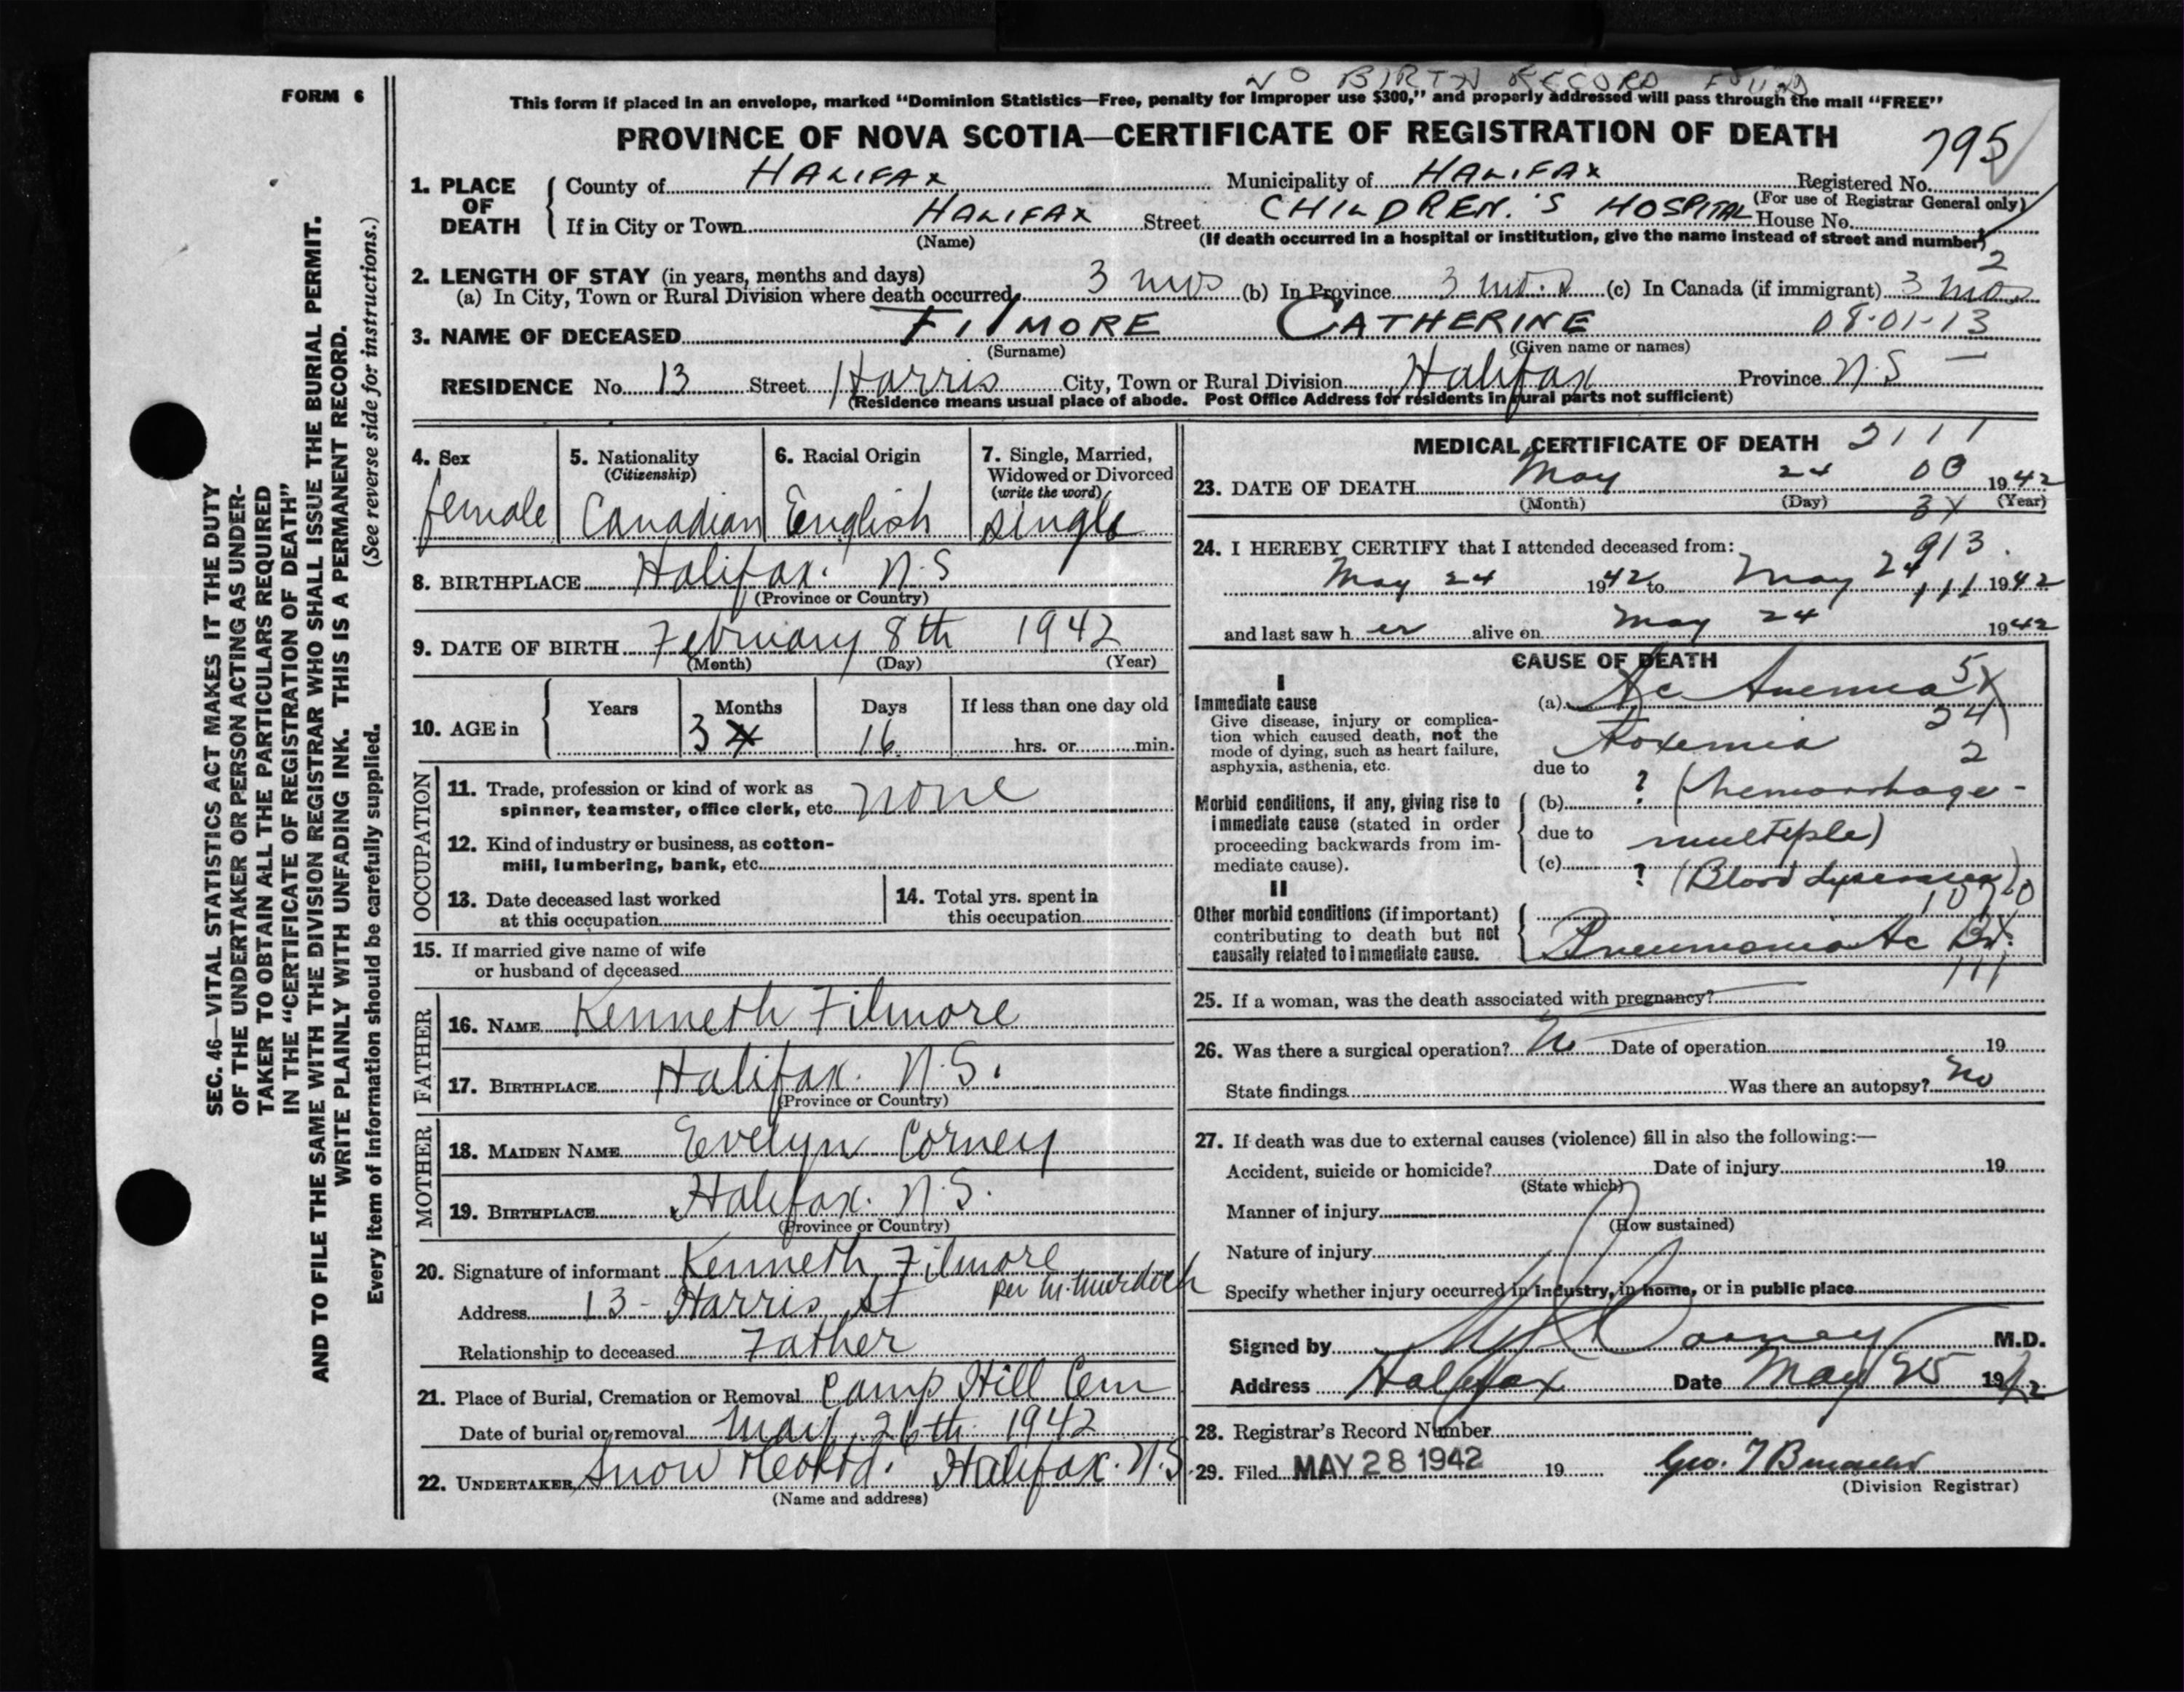 NO BIRTH RECORD FOUND
FORM 6
This form if placed in an envelope, marked "Dominion Statistics—Free, penalty for improper use $300," and properly addressed will pass through the mail "FREE"
PROVINCE OF NOVA SCOTIA—CERTIFICATE OF REGISTRATION OF DEATH
795
1. PLACE OF DEATH
County of HALIFAX Municipality of HALIFAX Registered No.
(For use of Registrar General only)
If in City or Town HALIFAX Street CHILDREN'S HOSPITAL House No.
(Name) (If death occurred in a hospital or institution, give the name instead of street and number)
2
2. LENGTH OF STAY (in years, months and days)
(a) In City, Town or Rural Division where death occurred 3 mos (b) In Province 3 mos (c) In Canada (if immigrant) 3 mos
3. NAME OF DECEASED FILMORE CATHERINE 08-01-13
(Surname) (Given name or names)
RESIDENCE No. 13 Street Harris City, Town or Rural Division Halifax Province N.S —
(Residence means usual place of abode. Post Office Address for residents in rural parts not sufficient)
4. Sex
female
5. Nationality
(Citizenship)
Canadian
6. Racial Origin
English
7. Single, Married,
Widowed or Divorced
(write the word)
single
8. BIRTHPLACE Halifax. N.S
(Province or Country)
9. DATE OF BIRTH February 8th 1942
(Month) (Day) (Year)
10. AGE in
Years Months Days If less than one day old
3 4 16 hrs. or min.
OCCUPATION
11. Trade, profession or kind of work as
spinner, teamster, office clerk, etc. none
12. Kind of industry or business, as cotton-
mill, lumbering, bank, etc.
13. Date deceased last worked
at this occupation
14. Total yrs. spent in
this occupation
15. If married give name of wife
or husband of deceased
FATHER
16. NAME Kenneth Filmore
17. BIRTHPLACE Halifax. N.S.
(Province or Country)
MOTHER
18. MAIDEN NAME Evelyn Corney
19. BIRTHPLACE Halifax. N.S.
(Province or Country)
20. Signature of informant Kenneth Filmore
Per M. Murdoch
Address 13 - Harris St
Relationship to deceased Father
21. Place of Burial, Cremation or Removal Camp Hill Cem
Date of burial or removal May 26th 1942
22. UNDERTAKER Snow Halifax. N.S
(Name and address)
MEDICAL CERTIFICATE OF DEATH 2111
23. DATE OF DEATH May 24 00 1942
(Month) (Day) 3X (Year)
24. I HEREBY CERTIFY that I attended deceased from: 913.
May 24 1942 to May 24 111 1942
and last saw her alive on May 24 1942
CAUSE OF DEATH
I
Immediate cause
Give disease, injury or complica-
tion which caused death, not the
mode of dying, such as heart failure,
asphyxia, asthenia, etc.
(a) Ac Anemia 5X
24
Toxemia 2
due to
Morbid conditions, if any, giving rise to
immediate cause (stated in order
proceeding backwards from im-
mediate cause).
(b) ? (hemorrhage -
due to multiple)
(c) ? (Blood
II
Other morbid conditions (if important)
contributing to death but not
causally related to immediate cause.
Pneumonia Ac
111
25. If a woman, was the death associated with pregnancy?
26. Was there a surgical operation? No Date of operation 19
State findings Was there an autopsy? No
27. If death was due to external causes (violence) fill in also the following:—
Accident, suicide or homicide? Date of injury 19
(State which)
Manner of injury
(How sustained)
Nature of injury
Specify whether injury occurred in industry, in home, or in public place
Signed by Corney M.D.
Address Halifax Date May 25 1942
28. Registrar's Record Number
29. Filed MAY 28 1942 19 Geo.
(Division Registrar)
SEC. 46—VITAL STATISTICS ACT MAKES IT THE DUTY
OF THE UNDERTAKER OR PERSON ACTING AS UNDER-
TAKER TO OBTAIN ALL THE PARTICULARS REQUIRED
IN THE "CERTIFICATE OF REGISTRATION OF DEATH"
AND TO FILE THE SAME WITH THE DIVISION REGISTRAR WHO SHALL ISSUE THE BURIAL PERMIT.
WRITE PLAINLY WITH UNFADING INK. THIS IS A PERMANENT RECORD.
Every item of information should be carefully supplied. (See reverse side for instructions.)